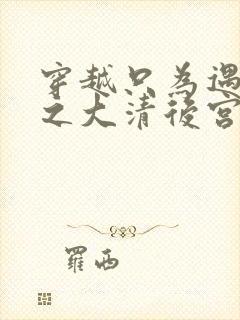 穿越只為遇
之大清後宮
羅西